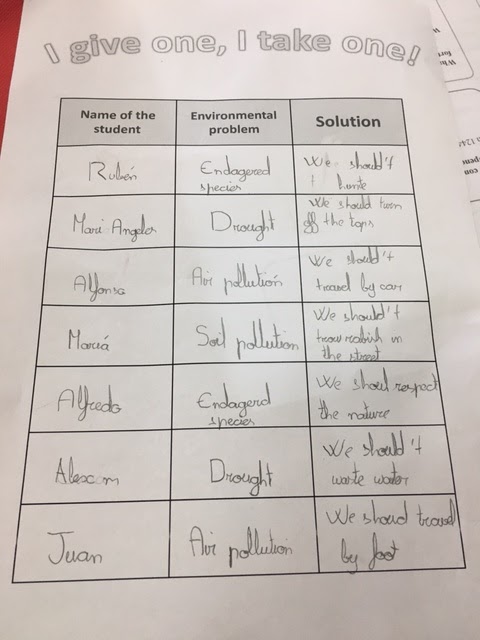 I give one, I take one!
Name of the student
Environmental problem
Solution
Rubén
Endagered
species
We should't
t hunte
Mari Angeles
Drought
We should turn
off the tops
Alfonso
Air pollutión
We should't
travel by car
Mariá
Soil pollution
We should't
trow rabish in
the street
Alfredo
Endagerd
species
We shoul respect
the nature
Alex m
Drought
We should't
waste water
Juan
Air pollution
We shoud travel
by foot